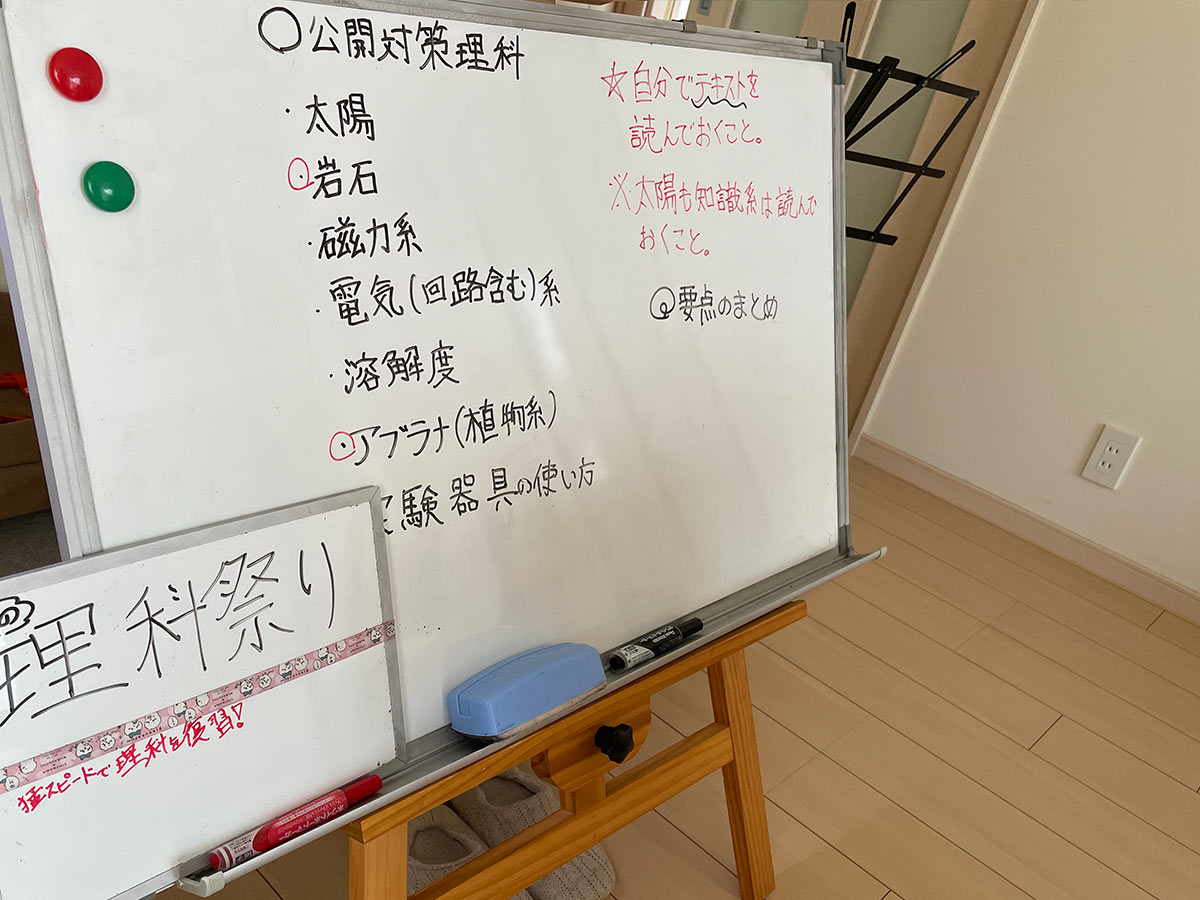 ○公開対策理科
・太陽
・岩石
・磁力系
・電気(回路含む)系
・溶解度
・アブラナ(植物系)
験器具の使い方
☆自分でテキストを
読んでおくこと。
※太陽も知識系は読んで
おくこと。
要点のまとめ
の
理科祭り
猛スピードで理科を復習!
ホワイトボードマーカー